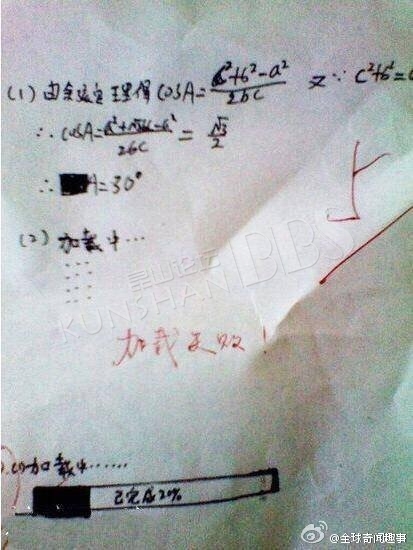 (1) 由余弦定理得 cosA = (c²+b²-a²)/2bc 又∵ c²+b²=
∴ cosA = (a²+√3bc-a²)/2bc = √3/2
∴ A=30°
(2) 加载中…
加载失败!
昆山论坛
KUNSHAN BBS
(1) 加载中……
已完成20%
@全球奇闻趣事